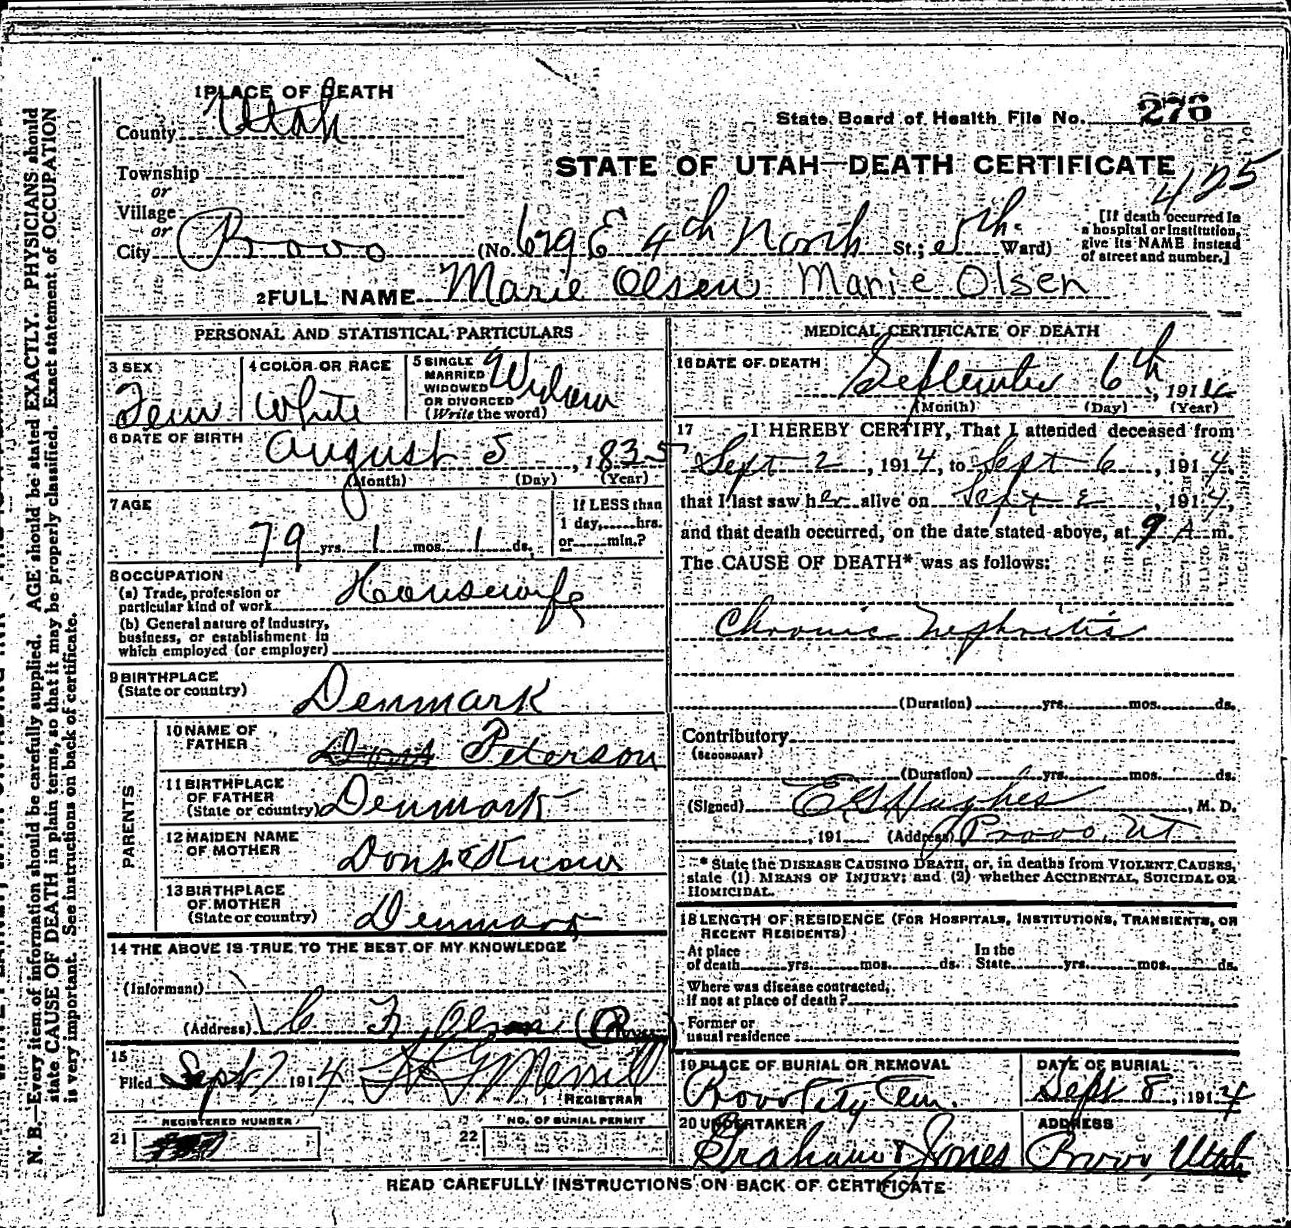 1 PLACE OF DEATH
County Utah
State Board of Health File No. 276
STATE OF UTAH—DEATH CERTIFICATE
425
Township
or
Village
or
City Provo (No. 679 E 4th North St.; 5th Ward)
[If death occurred in
a hospital or institution,
give its NAME instead
of street and number.]
2 FULL NAME Marie Olsen Marie Olsen
PERSONAL AND STATISTICAL PARTICULARS
3 SEX
Fem
4 COLOR OR RACE
White
5 SINGLE
MARRIED
WIDOWED
OR DIVORCED
(Write the word)
Widow
6 DATE OF BIRTH
August 5, 1835
(Month) (Day) (Year)
7 AGE
79 yrs. 1 mos. 1 ds.
If LESS than
1 day, hrs.
or min.?
8 OCCUPATION
(a) Trade, profession or
particular kind of work Housewife
(b) General nature of Industry,
business, or establishment in
which employed (or employer)
9 BIRTHPLACE
(State or country)
Denmark
PARENTS
10 NAME OF
FATHER
Peterson
11 BIRTHPLACE
OF FATHER
(State or country) Denmark
12 MAIDEN NAME
OF MOTHER
Dont Know
13 BIRTHPLACE
OF MOTHER
(State or country)
Denmark
14 THE ABOVE IS TRUE TO THE BEST OF MY KNOWLEDGE
(Informant)
(Address) Olsen
15
Filed Sept 7 1914 Merrill
REGISTRAR
REGISTERED NUMBER
21
NO. OF BURIAL PERMIT
22
MEDICAL CERTIFICATE OF DEATH
16 DATE OF DEATH
September 6th, 1914
(Month) (Day) (Year)
17 I HEREBY CERTIFY, That I attended deceased from
Sept 2, 1914, to Sept 6, 1914,
that I last saw her alive on Sept 2, 1914,
and that death occurred, on the date stated above, at 9 A m.
The CAUSE OF DEATH* was as follows:
Chronic Nephritis
(Duration) yrs. mos. ds.
Contributory
(SECONDARY)
(Duration) yrs. mos. ds.
(Signed) E G Hughes, M. D.
, 191 (Address) Provo, Ut
* State the DISEASE CAUSING DEATH, or, in deaths from VIOLENT CAUSES,
state (1) MEANS OF INJURY; and (2) whether ACCIDENTAL, SUICIDAL OR
HOMICIDAL.
18 LENGTH OF RESIDENCE (FOR HOSPITALS, INSTITUTIONS, TRANSIENTS, OR
RECENT RESIDENTS)
At place
of death yrs. mos. ds.
In the
State yrs. mos. ds.
Where was disease contracted,
if not at place of death?
Former or
usual residence
19 PLACE OF BURIAL OR REMOVAL
Provo City Cem.
DATE OF BURIAL
Sept 8, 1914
20 UNDERTAKER
Graham & Jones
ADDRESS
Provo, Utah
READ CAREFULLY INSTRUCTIONS ON BACK OF CERTIFICATE
N. B.—Every item of information should be carefully supplied. AGE should be stated EXACTLY. PHYSICIANS should
state CAUSE OF DEATH in plain terms, so that it may be properly classified. Exact statement of OCCUPATION
is very important. See instructions on back of certificate.